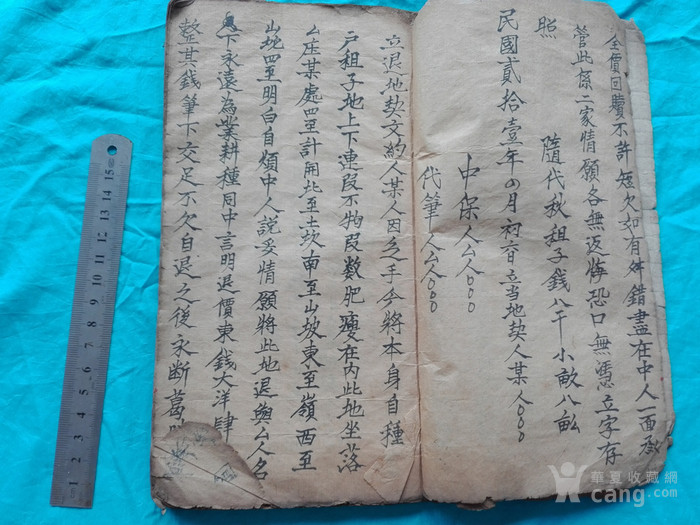 全價回贖不許短欠如有舛錯盡在中人一面承
管此係二家情願各無返悔恐口無憑立字存
照
隨代秋租子錢八千小畝八畆
民國貳拾壹年四月初六日立当地契人某人〇〇〇
中保人厶人〇〇〇
代筆人厶人〇〇〇
立退地契文約人某人因乏手今將本身自種
戶租子地上下連段不拘段數肥瘦在內此地坐落
厶庄某處四至計開北至土坎南至山坡東至嶺西至
山坨四至明白自煩中人説妥情願將此地退與厶人名
下永遠為業耕種同中言明退價東錢大洋肆
整其錢筆下交足不欠自退之後永断葛
華夏收藏網
cang.com
15 14 13 12 11 10 9 8 7 6 5 4 3 2 1